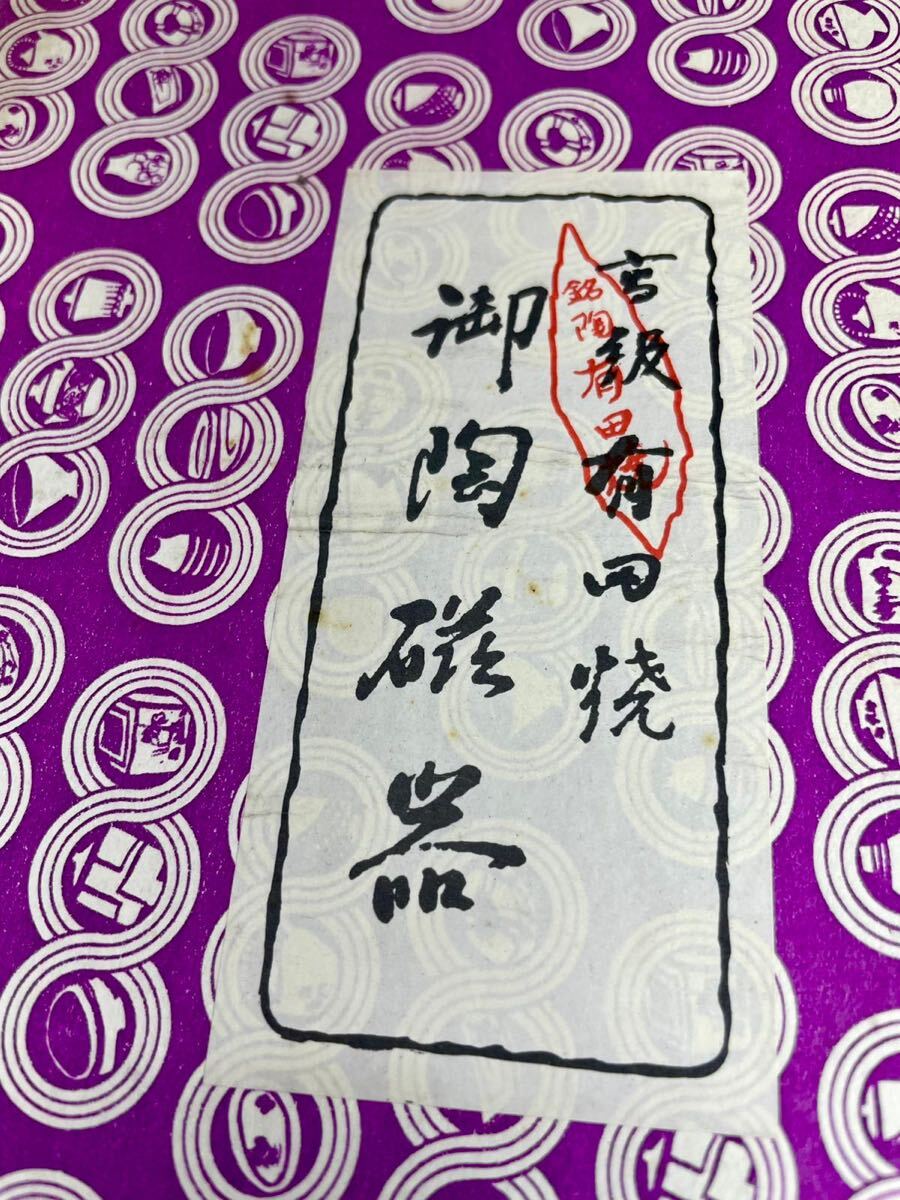 高級有田焼
銘陶有田焼
御陶磁器